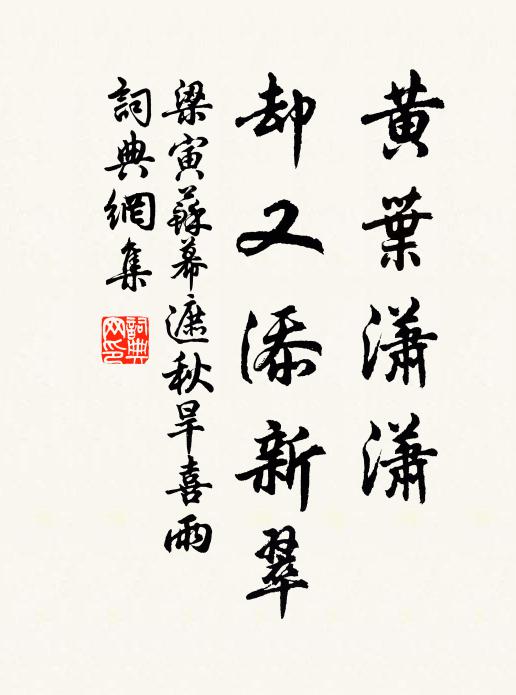 黃葉瀟瀟
却又添新翠
梁寅蘇幕遮秋旱喜雨
詞典網集
詞典网印